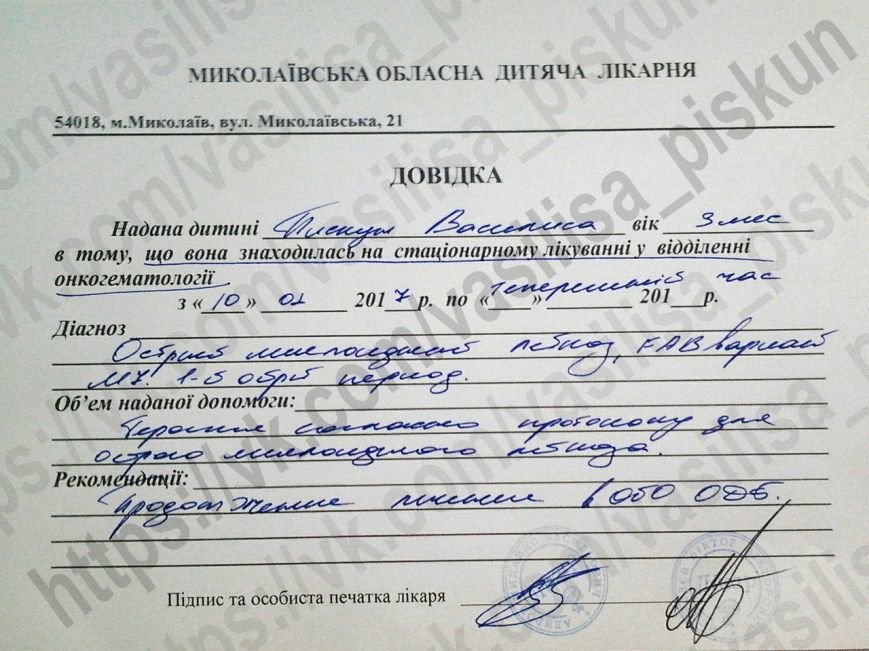 МИКОЛАЇВСЬКА ОБЛАСНА ДИТЯЧА ЛІКАРНЯ
54018, м.Миколаїв, вул. Миколаївська, 21
ДОВІДКА
Надана дитині Пискун Василиса вік 3 мес
в тому, що вона знаходилась на стаціонарному лікуванні у відділенні
онкогематології
з «10» 01 2017р. по «теперешній час» 201 р.
Діагноз
Острый миелоидный лейкоз, FAB вариант
М7. 1-й острый период.
Об’ем наданої допомоги:
Терапия согласно протоколу для
острого миелоидного лейкоза.
Рекомендації:
Продолжение лечения в ОГО ОДБ.
Підпис та особиста печатка лікаря
https://vk.com/vasilisa_piskun